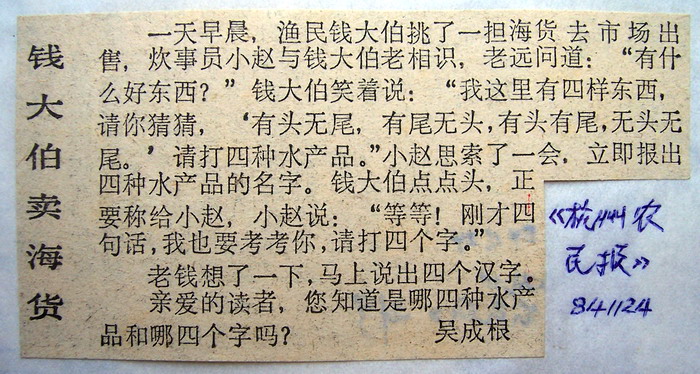 钱大伯卖海货
一天早晨，渔民钱大伯挑了一担海货去市场出
售，炊事员小赵与钱大伯老相识，老远问道：“有什
么好东西？”钱大伯笑着说：“我这里有四样东西，
请你猜猜，‘有头无尾，有尾无头，有头有尾，无头无
尾。’请打四种水产品。”小赵思索了一会，立即报出
四种水产品的名字。钱大伯点点头，正
要称给小赵，小赵说：“等等！刚才四
句话，我也要考考你，请打四个字。”
老钱想了一下，马上说出四个汉字。
亲爱的读者，您知道是哪四种水产
品和哪四个字吗？ 吴成根
《杭州农
民报》
841124